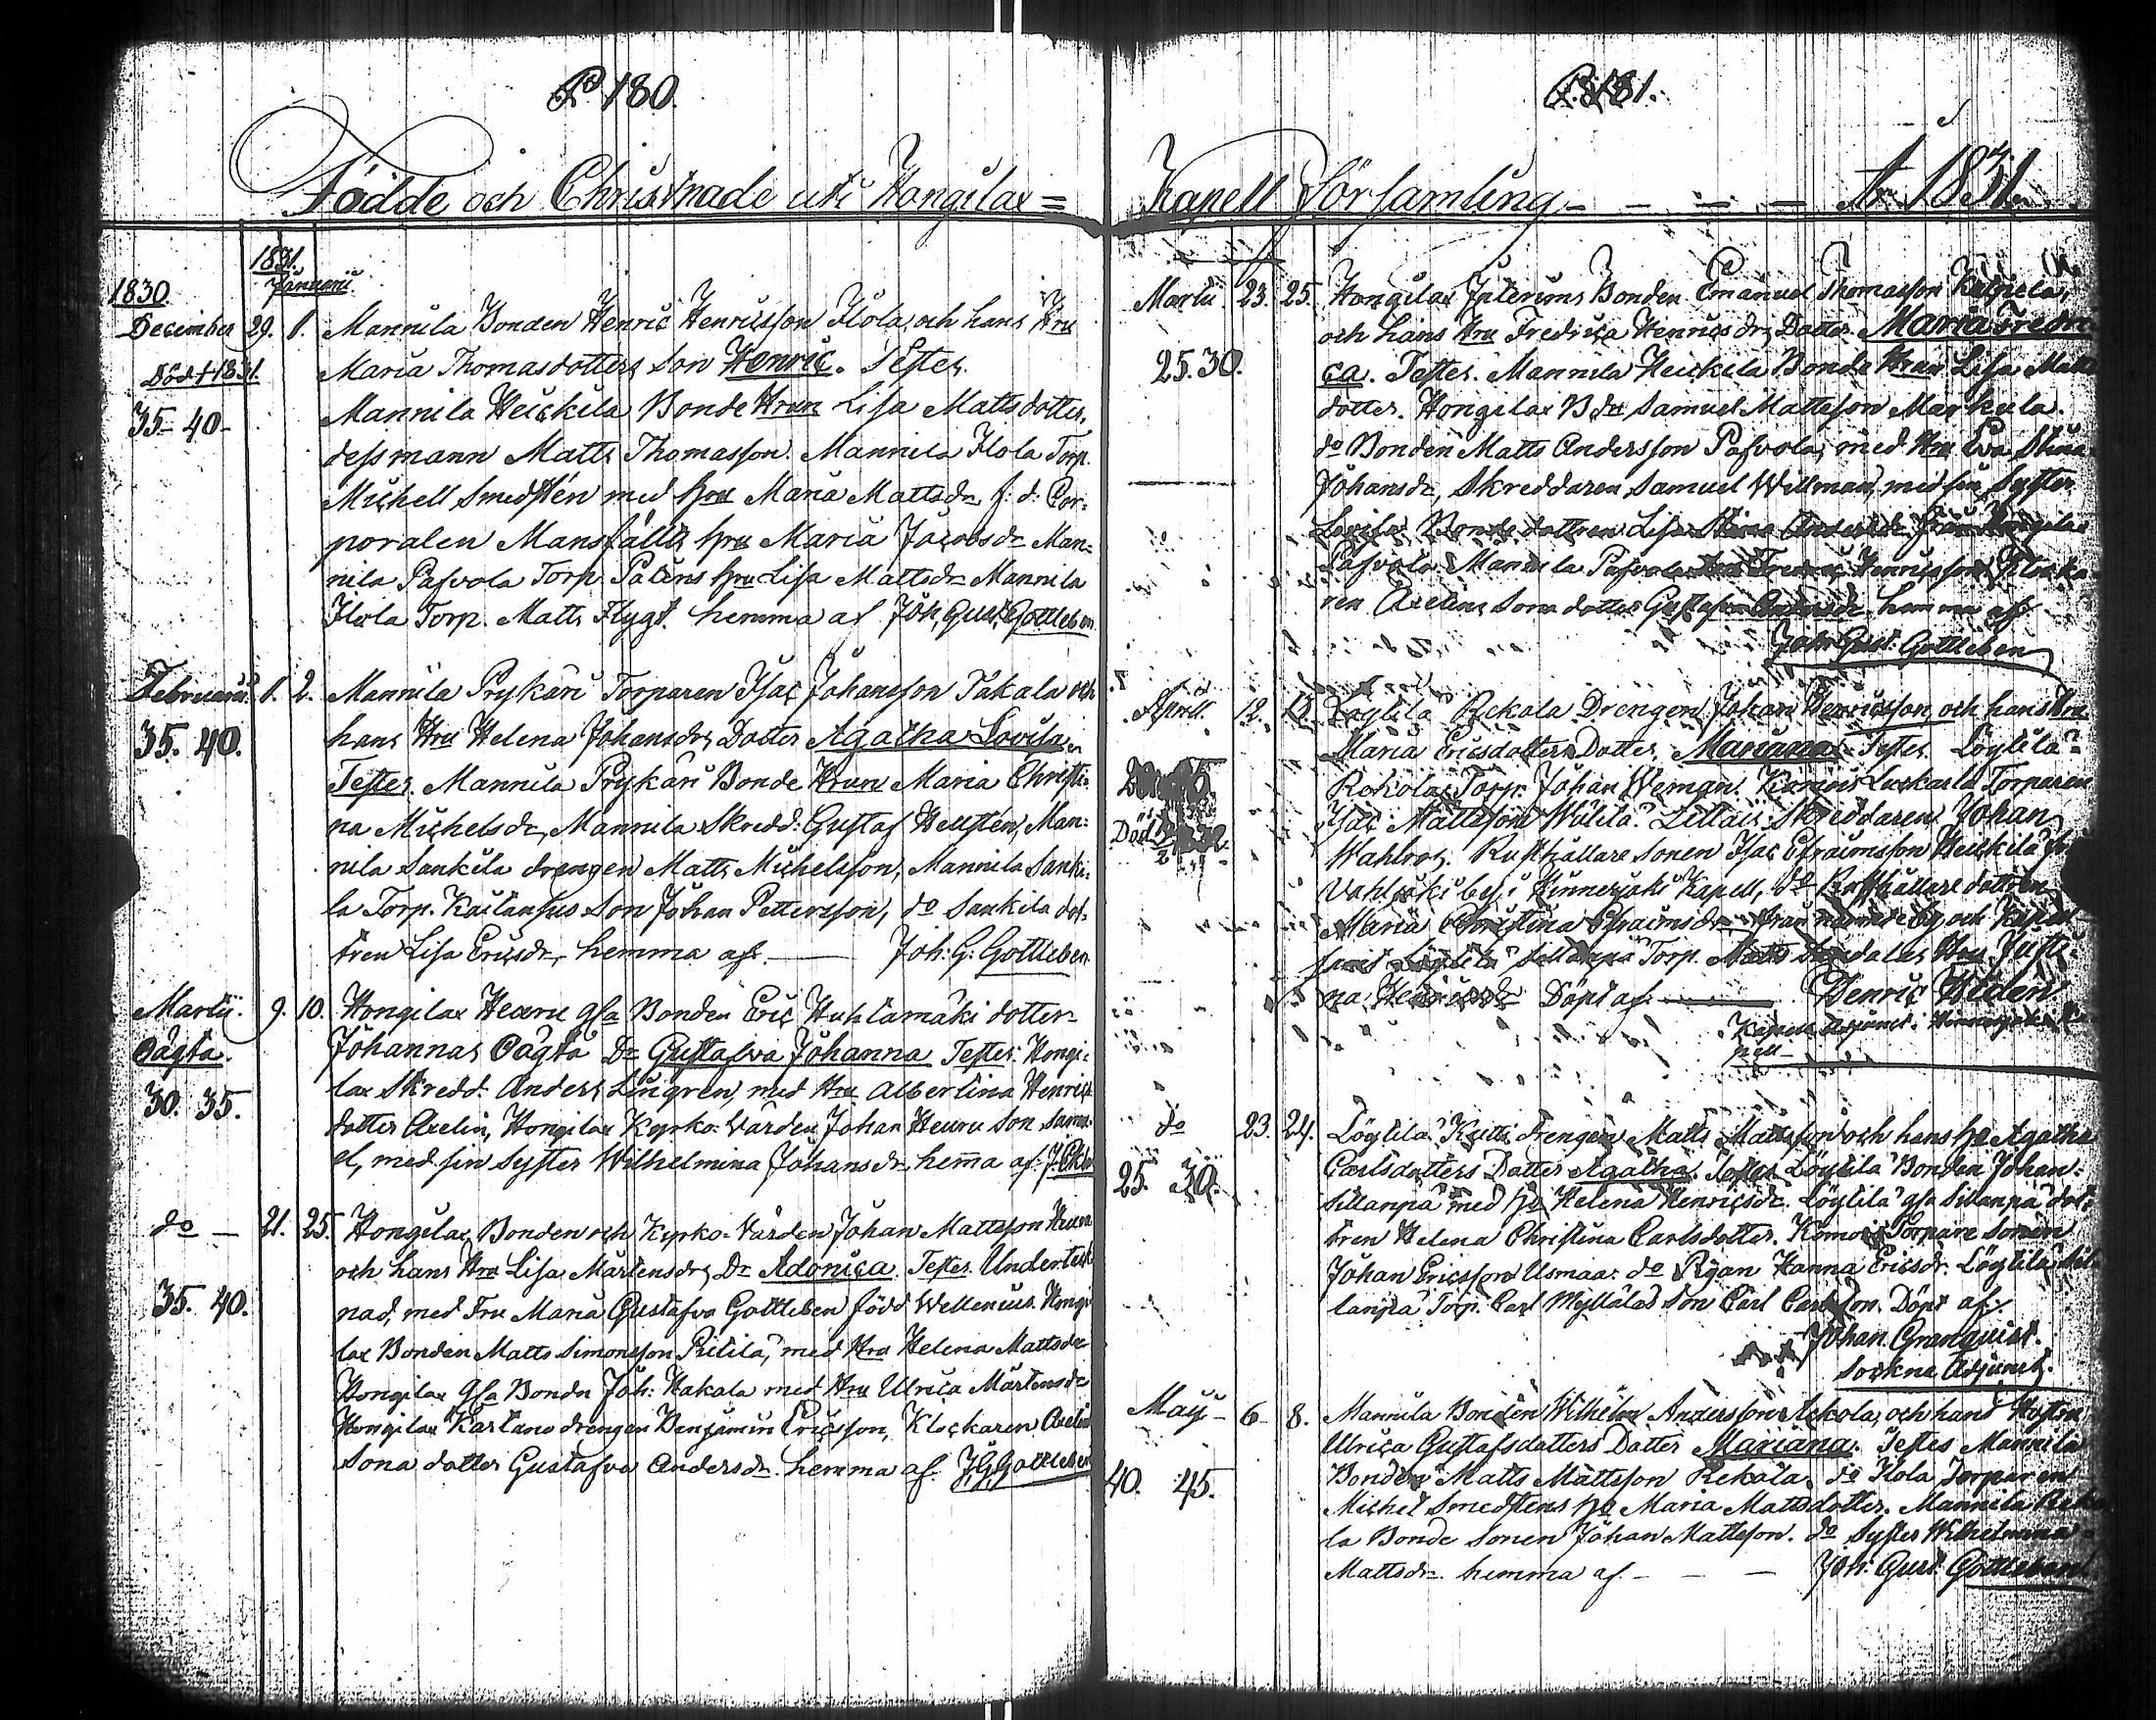 P 180.
Födde och Christnade uti Hongilax =
1831.
Januarii
1830
December 29. 1. Mannila Bonden Henric Henricsson Ilola, och hans Hru
Död † 1831. Maria Thomasdotters Son Henric. Testes.
35-40- Mannila Heickila Bonde Hrun Lisa Mattsdotter,
dessmann Matts Thomasson. Mannila Ilola Torp.
Michell Smedstén med Hru Maria Mattsdr, f: d: Cor-
poralen Mansfälts Hru Maria Jacobsdr Man-
nila Pasvola Torp. Paléns Hru Lisa Mattsdr Mannila
Ilola Torp. Matts Flygt. hemma af Joh, Gust, Gottleben
Februarii 1. 2. Mannila Prykäri Torparen Isac Johansson Takala och
35. 40. hans Hru Helena Johansdrs Dotter Agatha Lovisa,
Testes. Mannila Prykäri Bonde Hrun Maria Christi-
na Michelsdr, Mannila Skredd: Gustaf Hellstén, Man-
nila Sankila drengen Matts Michelsson, Mannila Sanki-
la Torp. Kaitansus Son Johan Pettersson, do Sankila dot-
tren Lisa Ericsdr, hemma af. Joh: G: Gottleben
Martii. 9. 10. Hongilax Heuru gla Bonden Eric Huhtamäki dotter
Oägta. Johannas Oägta Dr Gustafva Johanna Testes: Hongi-
30. 35. lax Skredd. Anders Lingren, med Hru Albertina Henrics
dotter Axelin, Hongilax Kyrko-Värden Johan Heuru Son Samu-
el, med sin Syster Wilhelmina Johansdr, hema af:
do - 21. 25. Hongilax Bonden och Kyrko-Värden Johan Mattsson Heuru
och hans Hru Lisa Mårtensdrs Dr Adonica. Testes. Underteck-
35. 40. nad, med Fru Maria Gustafva Gottleben född Wellenius. Hongi-
lax Bonden Matts Simonsson Pitila, med Hru Helena Mattsdr
Hongilax Gla Bonden Joh: Hakala med Hru Ulrica Mårtensdr
Hongilax Kartano drengen Benjamin Ericsson, Klockaren Axelins
Sona dotter Gustafva Andersdr. hemma af. J G Gottleben
P. 181.
Kapell Församling - - - - År 1831.
Martii 23. 25. Hongilax Interims Bonden Emanuel Thomasson
och hans Hru Fredrica Henricsdrs Dotter. Maria Fredri-
25. 30. ca. Testes. Mannila Heickila Bonde Hrun Lisa Matts
dotter. Hongilax Bdn Samuel Mattsson Markula.
do Bonden Matts Andersson Pasvola, med Hru Eva Stina
Johansdr, Skreddaren Samuel Willman, med sin Syster
Lovisa Bonde dottren Lisa Stina från Hongilax
Pasvola Mannila Pasvola Henricsson Klocka-
ren Axelins Sona dotter Gustafva hemma af
Joh: Gust: Gottleben
Aprill. 12. 13. Löytilä Rekola Drengen Johan Henricsson och hans Hru
Maria Ericsdotters Dotter. Mariana Testes Löytilä
Rekola Torp: Johan Weman. Torparen
Död Isac Mattsson Skreddaren Johan
Wahlros. Rusthållare Sonen Isac Efraimsson Heickilä
bes: i Hinnerjoki Kapell, do Rusthållare dottren
Maria Christina Efraimsdr från
Löytilä Sillanpä Torp. Hru Justi-
na Henricsdr Döpt af. Henric Widén
Kapells Adjunct i Hinnerjoki Ka-
pell
do 23. 24. Löytilä Keitti drengen Matts Mattsson och hans Ho Agatha
25. 30. Carlsdotters Dotter Agatha. Testes Löytilä Bonden Johan
Sillanpä med Ho Helena Henricsdr. Löytilä gla Sillanpä dot-
tren Helena Christina Carlsdotter. Torpare Sonen
Johan Ericsson Usmaa: do Pigan Hanna Ericsdr. Löytilä Sil-
lanpä Torp. Carl Myllälas Son Carl Carlsson. Döpt af
Johan Granquist.
Sockne Adjunct.
Maji - 6 - 8. Mannila Bonden Wilhelm Andersson Rekola, och hans Hustru
Ulrica Gustafsdotters Dotter Mariana. Testes Mannila
40. 45. Bonden Matts Mattsson Rekola. do Ilola Torparen
Michel Smedstens Ho Maria Mattsdotter. Mannila Reko-
la Bonde Sonen Johan Mattsson. do Syster Wilhelmina
Mattsdr. hemma af - - - Joh: Gust: Gottleben